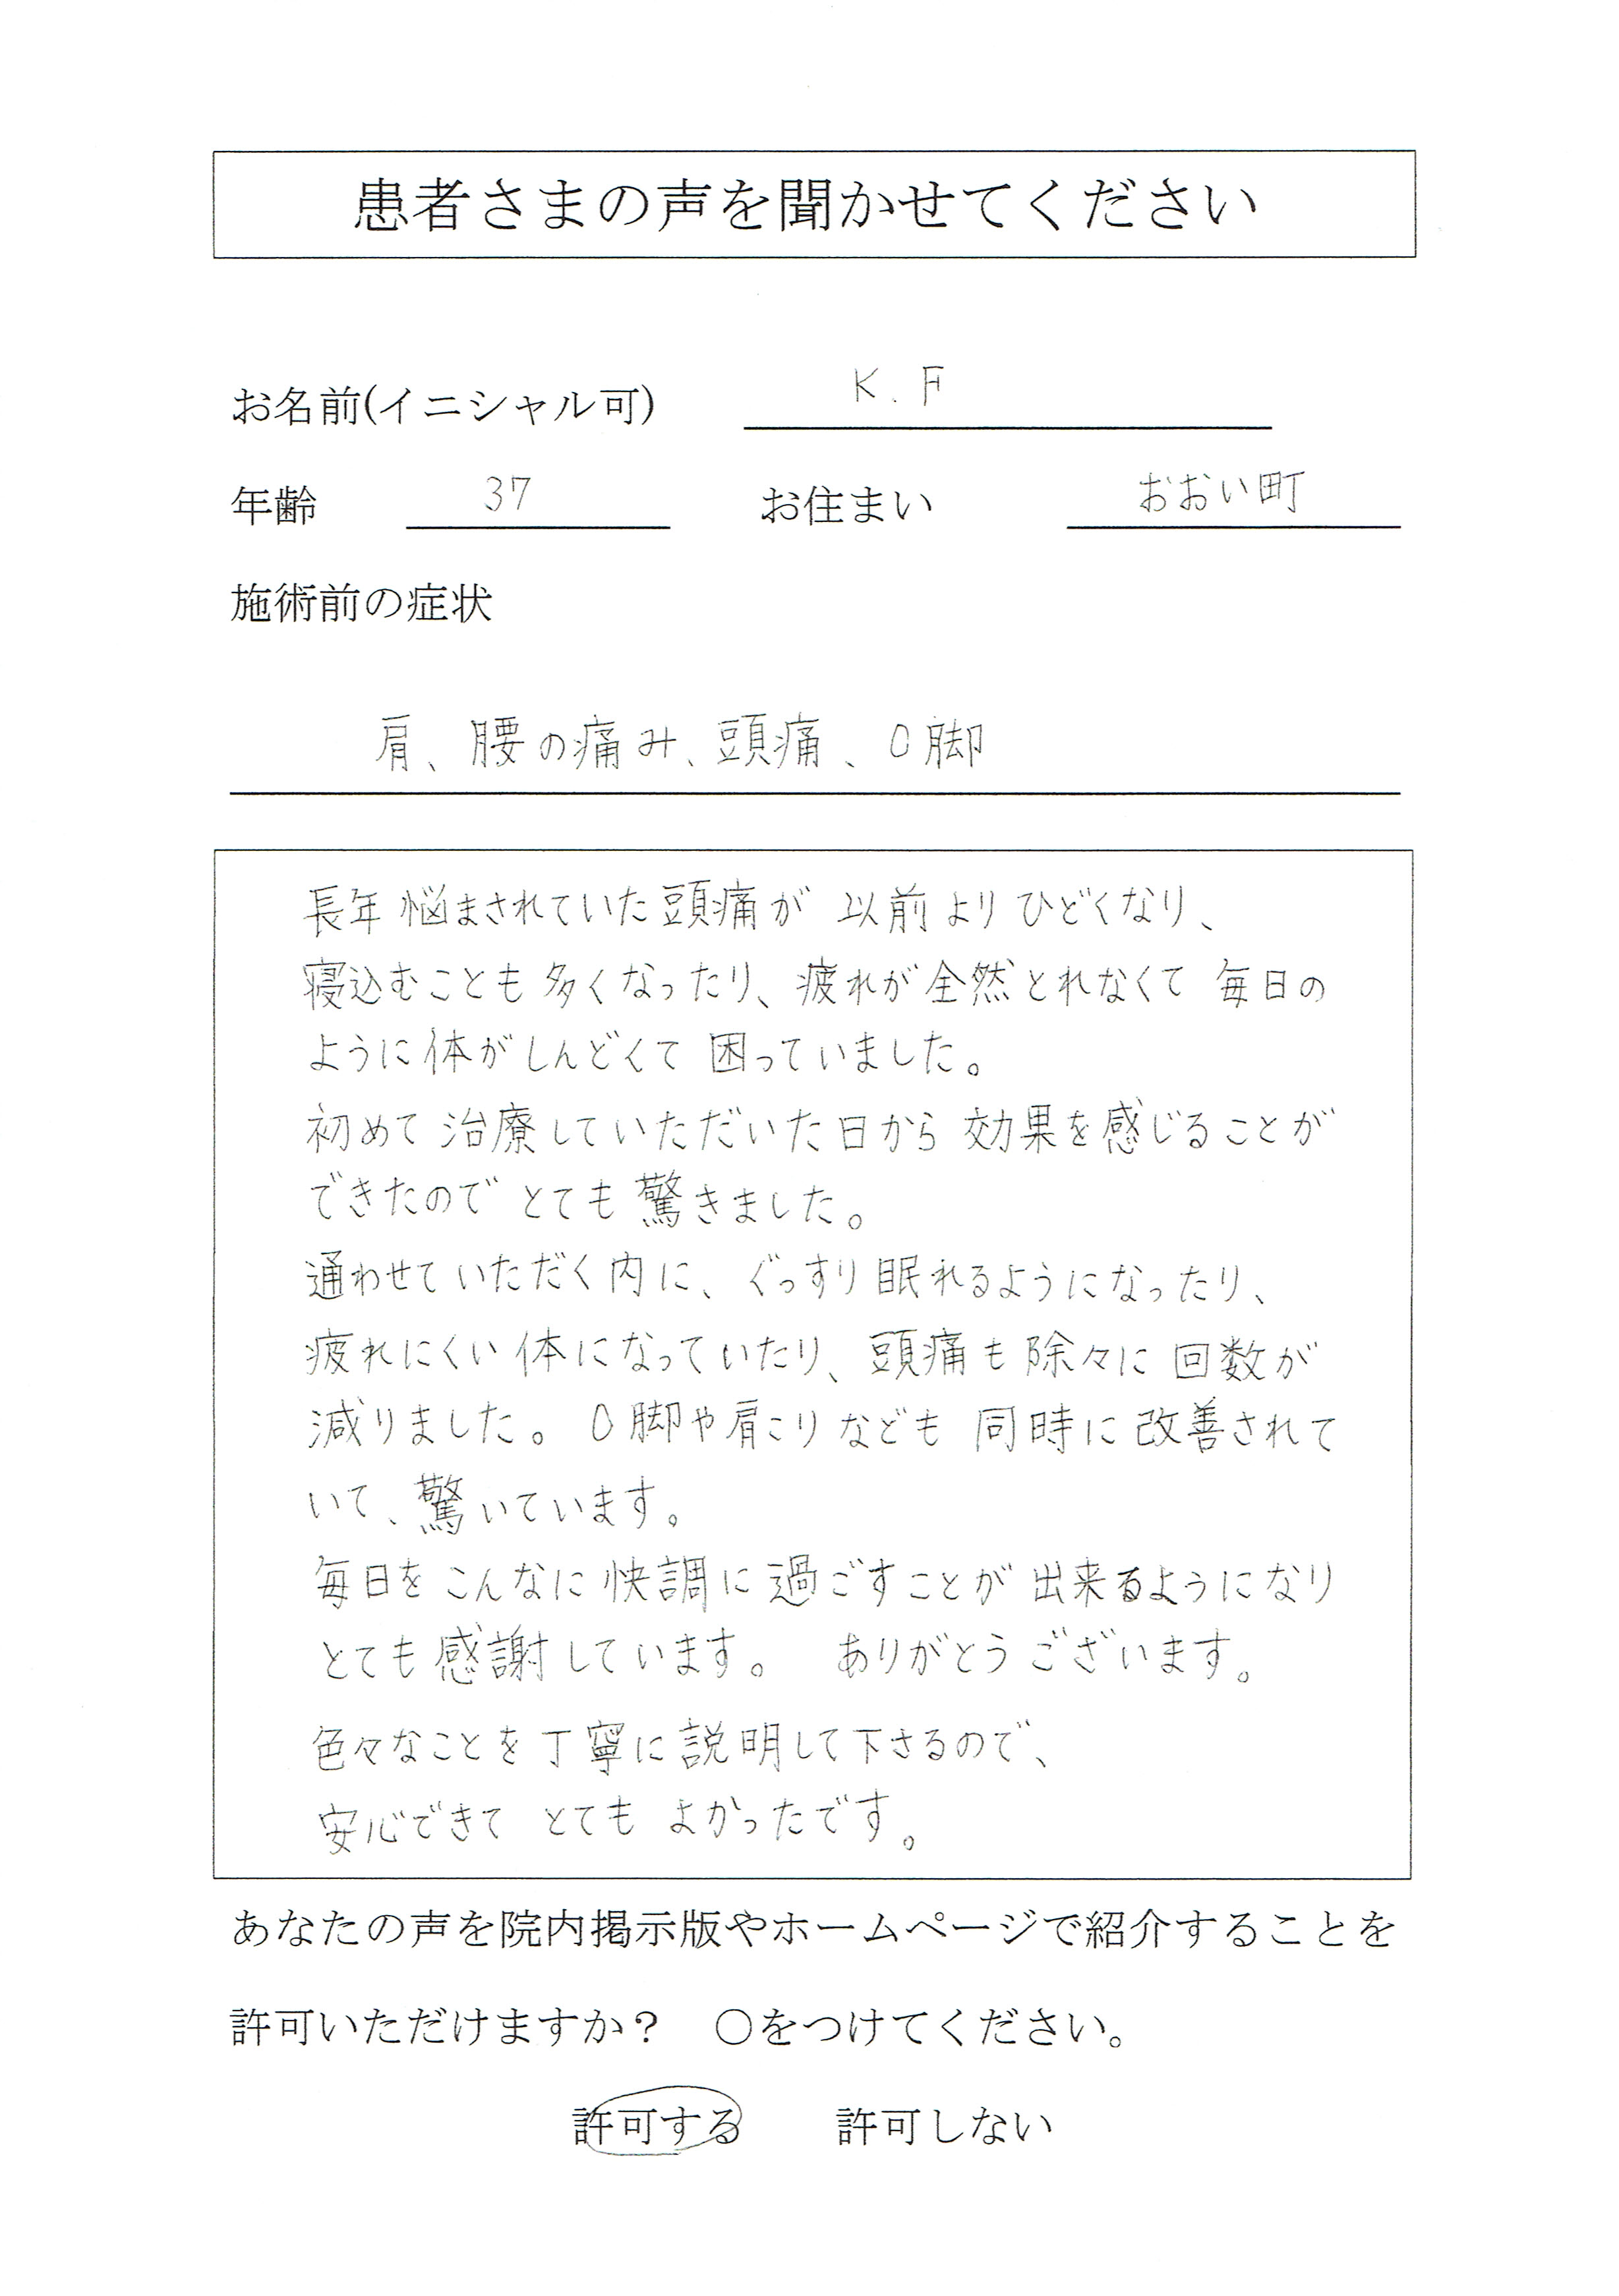 患者さまの声を聞かせてください
お名前(イニシャル可) K.F
年齢 37 お住まい おおい町
施術前の症状
肩、腰の痛み、頭痛、O脚
長年悩まされていた頭痛が 以前よりひどくなり、
寝込むことも多くなったり、疲れが全然とれなくて 毎日の
ように体がしんどくて 困っていました。
初めて 治療していただいた日から 効果を感じることが
できたので とても驚きました。
通わせていただく内に、ぐっすり眠れるようになったり、
疲れにくい体になっていたり、頭痛も除々に 回数が
減りました。O脚や肩こりなども 同時に改善されて
いて、驚いています。
毎日を こんなに快調に過ごすことが 出来るようになり
とても感謝しています。 ありがとうございます。
色々なことを丁寧に説明して下さるので、
安心できて とても よかったです。
あなたの声を院内掲示版やホームページで紹介することを
許可いただけますか? ○をつけてください。
許可する 許可しない